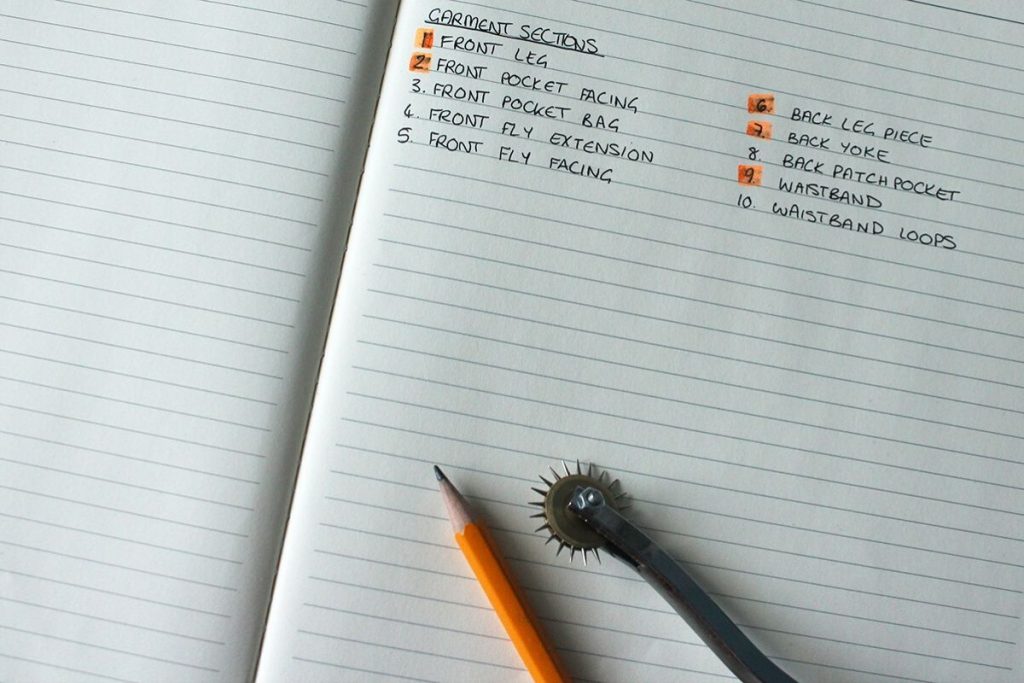 GARMENT SECTIONS
1 FRONT LEG
2. FRONT POCKET FACING
3. FRONT POCKET BAG
4. FRONT FLY EXTENSION
5. FRONT FLY FACING
6. BACK LEG PIECE
7. BACK YOKE
8. BACK PATCH POCKET
9. WAISTBAND
10. WAISTBAND LOOPS